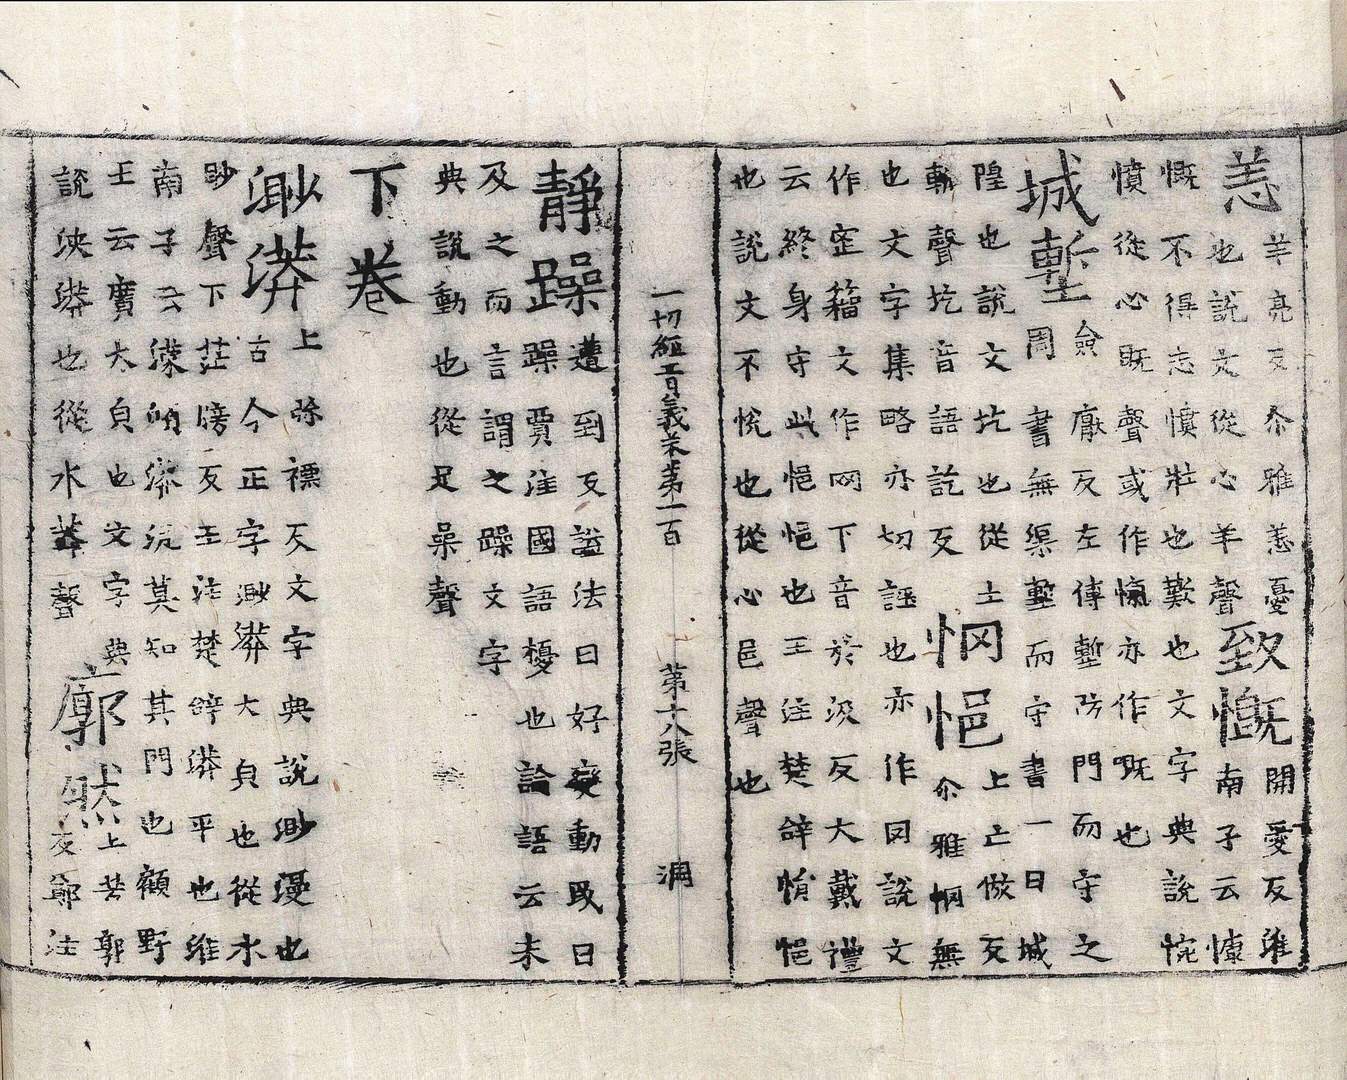 恙羊亮反尒雅恙憂
也說文從心羊聲致慨開愛反淮
南子云慷
慨不得志憤壯也歎也文字典說惋
憤從心既聲或作愾亦作嘅也
城塹僉廠反左傳塹防門而守之
周書無渠塹而守書一曰城
隍也說文坑也從土
斬聲坑音語訖反惘悒上亡倣反
尒雅惘無
也文字集略亦切誣也亦作罔說文
作𡩡籀文作网下音於汲反大戴禮
云終身守此悒悒也王注楚辝悁悒
也說文不悅也從心邑聲也
一切經音義卷第一百 第十八張 洞
靜躁遭到反謚法曰好變動㞋曰
躁賈注國語擾也論語云未
及之而言謂之躁文字
典說動也從足喿聲
下卷
渺漭上弥褾反文字典說渺漫也
古今正字渺漭大皃也從水
眇聲下茫牓反王注楚辝漭平也淮
南子云濛澒漭沆莫知其門也顧野
王云廣大皃也文字典
說泱漭也從水莽聲廓然上苦郭
反鄭注